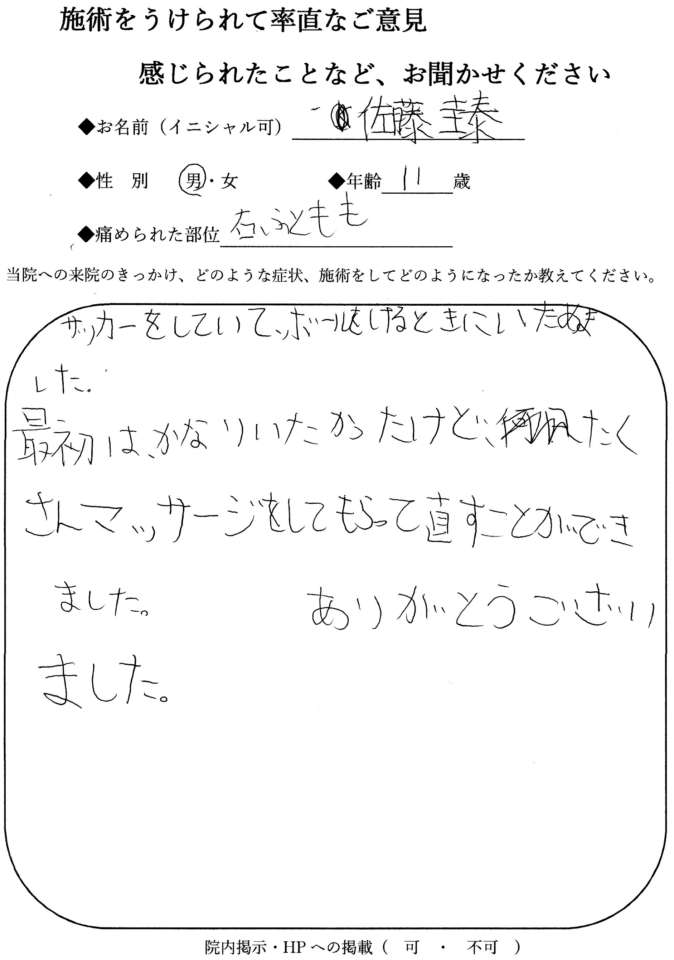 施術をうけられて率直なご意見
感じられたことなど、お聞かせください
◆お名前（イニシャル可） 佐藤 圭泰
◆性 別 男・女 ◆年齢 11 歳
◆痛められた部位 右ふともも
当院への来院のきっかけ、どのような症状、施術をしてどのようになったか教えてください。
サッカーをしていて、ボールをけるときにいためま
した。
最初は、かなりいたかったけど、たく
さんマッサージをしてもらって直すことができ
ました。 ありがとうございい
ました。
院内掲示・HPへの掲載（ 可 ・ 不可 ）